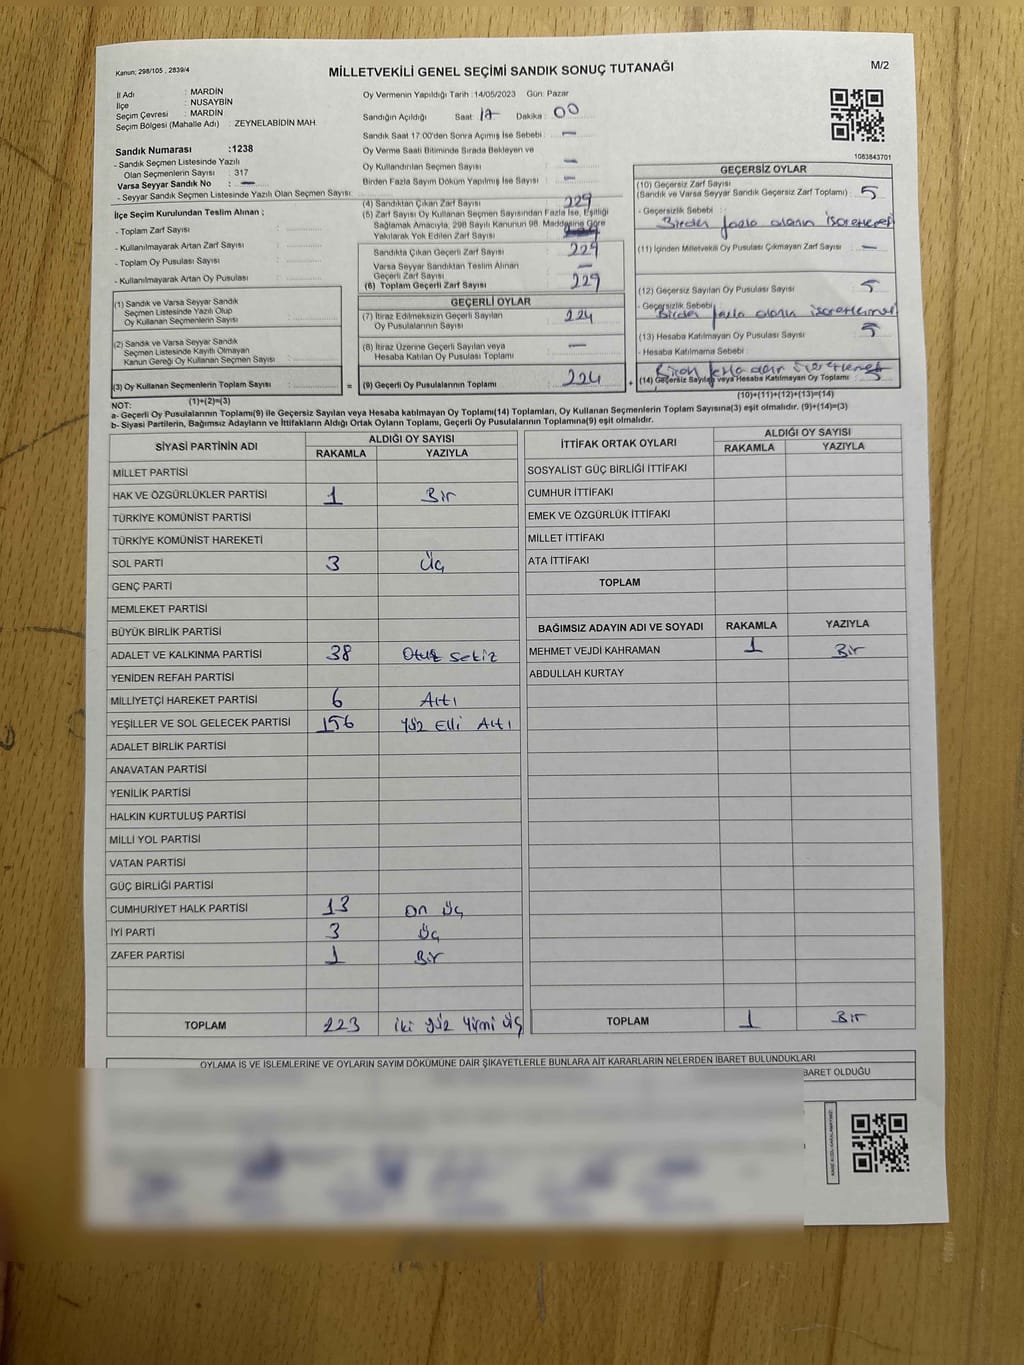 Kanun; 298/105 , 2839/4
MİLLETVEKİLİ GENEL SEÇİMİ SANDIK SONUÇ TUTANAĞI
M/2
İl Adı : MARDİN
İlçe : NUSAYBİN
Seçim Çevresi : MARDİN
Seçim Bölgesi (Mahalle Adı) : ZEYNELABİDİN MAH.
Sandık Numarası :1238
- Sandık Seçmen Listesinde Yazılı
Olan Seçmenlerin Sayısı : 317
Varsa Seyyar Sandık No : —
- Seyyar Sandık Seçmen Listesinde Yazılı Olan Seçmen Sayısı:
İlçe Seçim Kurulundan Teslim Alınan ;
- Toplam Zarf Sayısı :
- Kullanılmayarak Artan Zarf Sayısı :
- Toplam Oy Pusulası Sayısı :
- Kullanılmayarak Artan Oy Pusulası :
(1) Sandık ve Varsa Seyyar Sandık
Seçmen Listesinde Yazılı Olup
Oy Kullanan Seçmenlerin Sayısı :
(2) Sandık ve Varsa Seyyar Sandık
Seçmen Listesinde Kayıtlı Olmayan
Kanun Gereği Oy Kullanan Seçmen Sayısı :
(3) Oy Kullanan Seçmenlerin Toplam Sayısı :
(1)+(2)=(3)
Oy Vermenin Yapıldığı Tarih : 14/05/2023 Gün: Pazar
Sandığın Açıldığı Saat : 17 Dakika : 00
Sandık Saat 17:00'den Sonra Açımış İse Sebebi : —
Oy Verme Saati Bitiminde Sırada Bekleyen ve
Oy Kullandırılan Seçmen Sayısı : —
Birden Fazla Sayım Döküm Yapılmış İse Sayısı : —
(4) Sandıktan Çıkan Zarf Sayısı : 229
(5) Zarf Sayısı Oy Kullanan Seçmen Sayısından Fazla İse, Eşitliği
Sağlamak Amacıyla, 298 Sayılı Kanunun 98. Maddesine Göre
Yakılarak Yok Edilen Zarf Sayısı :
Sandıkta Çıkan Geçerli Zarf Sayısı : 229
Varsa Seyyar Sandıktan Teslim Alınan
Geçerli Zarf Sayısı : —
(6) Toplam Geçerli Zarf Sayısı : 229
GEÇERLİ OYLAR
(7) İtiraz Edilmeksizin Geçerli Sayılan
Oy Pusulalarının Sayısı : 224
(8) İtiraz Üzerine Geçerli Sayılan veya
Hesaba Katılan Oy Pusulası Toplamı : —
= (9) Geçerli Oy Pusulalarının Toplamı : 224 +
1083843701
GEÇERSİZ OYLAR
(10) Geçersiz Zarf Sayısı
(Sandık ve Varsa Seyyar Sandık Geçersiz Zarf Toplamı) : 5
- Geçersizlik Sebebi :
(11) İçinden Milletvekili Oy Pusulası Çıkmayan Zarf Sayısı : —
(12) Geçersiz Sayılan Oy Pusulası Sayısı : 5
- Geçersizlik Sebebi :
(13) Hesaba Katılmayan Oy Pusulası Sayısı : 5
- Hesaba Katılmama Sebebi :
(14) Geçersiz Sayılan veya Hesaba Katılmayan Oy Toplamı : 5
(10)+(11)+(12)+(13)=(14)
NOT:
a- Geçerli Oy Pusulalarının Toplamı(9) ile Geçersiz Sayılan veya Hesaba katılmayan Oy Toplamı(14) Toplamları, Oy Kullanan Seçmenlerin Toplam Sayısına(3) eşit olmalıdır. (9)+(14)=(3)
b- Siyasi Partilerin, Bağımsız Adayların ve İttifakların Aldığı Ortak Oyların Toplamı, Geçerli Oy Pusulalarının Toplamına(9) eşit olmalıdır.
SİYASİ PARTİNİN ADI ALDIĞI OY SAYISI
RAKAMLA YAZIYLA
MİLLET PARTİSİ
HAK VE ÖZGÜRLÜKLER PARTİSİ 1 Bir
TÜRKİYE KOMÜNİST PARTİSİ
TÜRKİYE KOMÜNİST HAREKETİ
SOL PARTİ 3 Üç
GENÇ PARTİ
MEMLEKET PARTİSİ
BÜYÜK BİRLİK PARTİSİ
ADALET VE KALKINMA PARTİSİ 38 Otuz sekiz
YENİDEN REFAH PARTİSİ
MİLLİYETÇİ HAREKET PARTİSİ 6 Altı
YEŞİLLER VE SOL GELECEK PARTİSİ 156 Yüz Elli Altı
ADALET BİRLİK PARTİSİ
ANAVATAN PARTİSİ
YENİLİK PARTİSİ
HALKIN KURTULUŞ PARTİSİ
MİLLİ YOL PARTİSİ
VATAN PARTİSİ
GÜÇ BİRLİĞİ PARTİSİ
CUMHURİYET HALK PARTİSİ 13 on üç
İYİ PARTİ 3 üç
ZAFER PARTİSİ 1 Bir
TOPLAM 223 iki yüz yirmi üç
İTTİFAK ORTAK OYLARI ALDIĞI OY SAYISI
RAKAMLA YAZIYLA
SOSYALİST GÜÇ BİRLİĞİ İTTİFAKI
CUMHUR İTTİFAKI
EMEK VE ÖZGÜRLÜK İTTİFAKI
MİLLET İTTİFAKI
ATA İTTİFAKI
TOPLAM
BAĞIMSIZ ADAYIN ADI VE SOYADI RAKAMLA YAZIYLA
MEHMET VEJDİ KAHRAMAN 1 Bir
ABDULLAH KURTAY
TOPLAM 1 Bir
OYLAMA İŞ VE İŞLEMLERİNE VE OYLARIN SAYIM DÖKÜMÜNE DAİR ŞİKAYETLERLE BUNLARA AİT KARARLARIN NELERDEN İBARET BULUNDUKLARI
BARET OLDUĞU